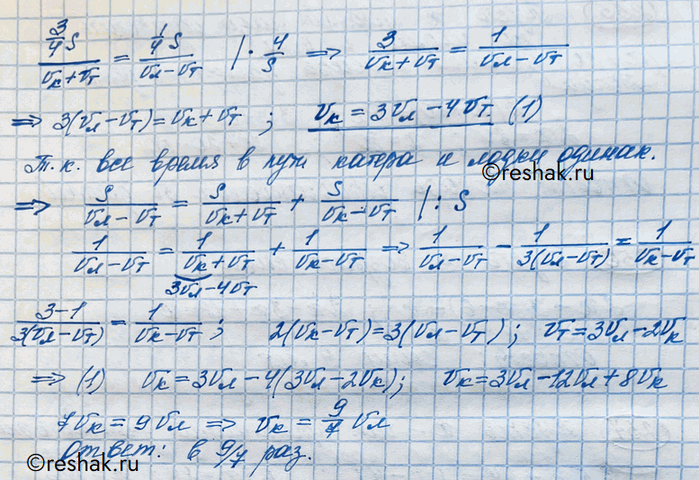 3/4 S / (Vк+Vт) = 1/4 S / (Vл−Vт) | · 4/S ⇒ 3/(Vк+Vт) = 1/(Vл−Vт)
⇒ 3(Vл−Vт)=Vк+Vт ; Vк = 3Vл−4Vт. (1)
Т.к. все время в пути катера и лодки одинак.
©reshak.ru
⇒ S/(Vл−Vт) = S/(Vк+Vт) + S/(Vк−Vт) |: S
1/(Vл−Vт) = 1/(Vк+Vт) + 1/(Vк−Vт) ⇒ 1/(Vл−Vт) − 1/(3(Vл−Vт)) = 1/(Vк−Vт)
3Vл−4Vт
(3−1)/(3(Vл−Vт)) = 1/(Vк−Vт) ; 2(Vк−Vт)=3(Vл−Vт) ; Vт=3Vл−2Vк
⇒ (1) Vк=3Vл−4(3Vл−2Vк); Vк=3Vл−12Vл+8Vк
7Vк=9Vл ⇒ Vк = 9/7 Vл
Ответ: в 9/7 раз.
©reshak.ru